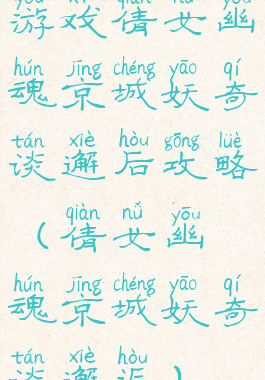 yóu xì qiàn nǚ yōu
游戏倩女幽
hún jīng chéng yāo qí
魂京城妖奇
tán xiè hòu gōng lüè
谈邂后攻略
qiàn nǚ yōu
(倩女幽
hún jīng chéng yāo qí
魂京城妖奇
tán xiè hòu
谈邂近)